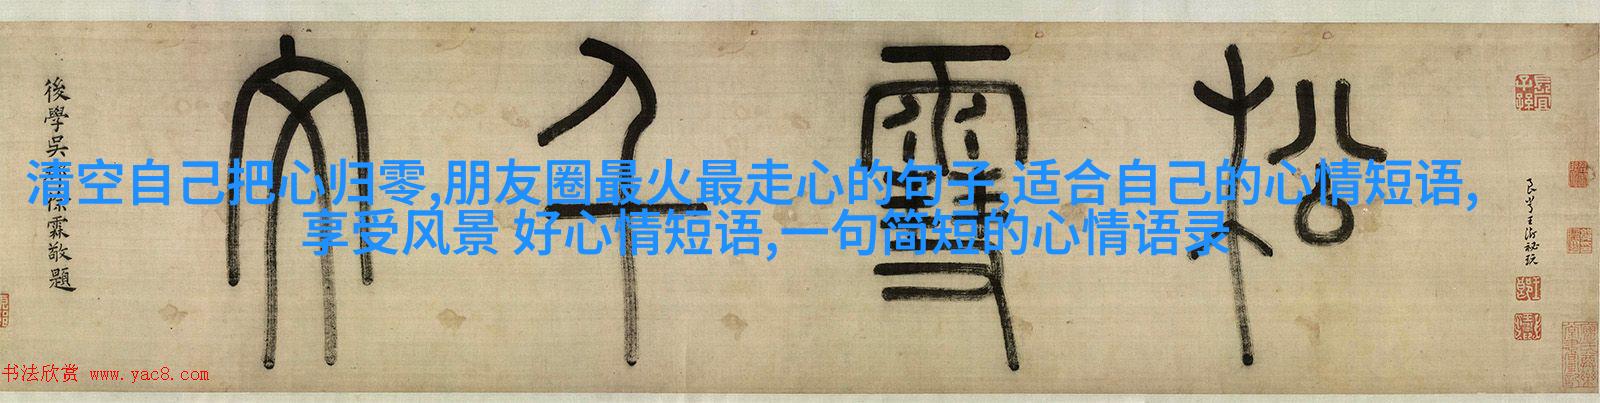 長宜子孫
松雪千文
後學吳 徐霖敬題
清空自己把心归零,朋友圈最火最走心的句子,适合自己的心情短语,
享受风景 好心情短语,一句简短的心情语录
书法欣赏 www.yac8.com